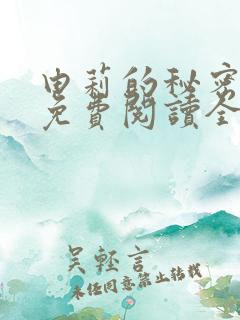 由莉的秘密
免費閱讀全
吴輕言
未经同意禁止转载